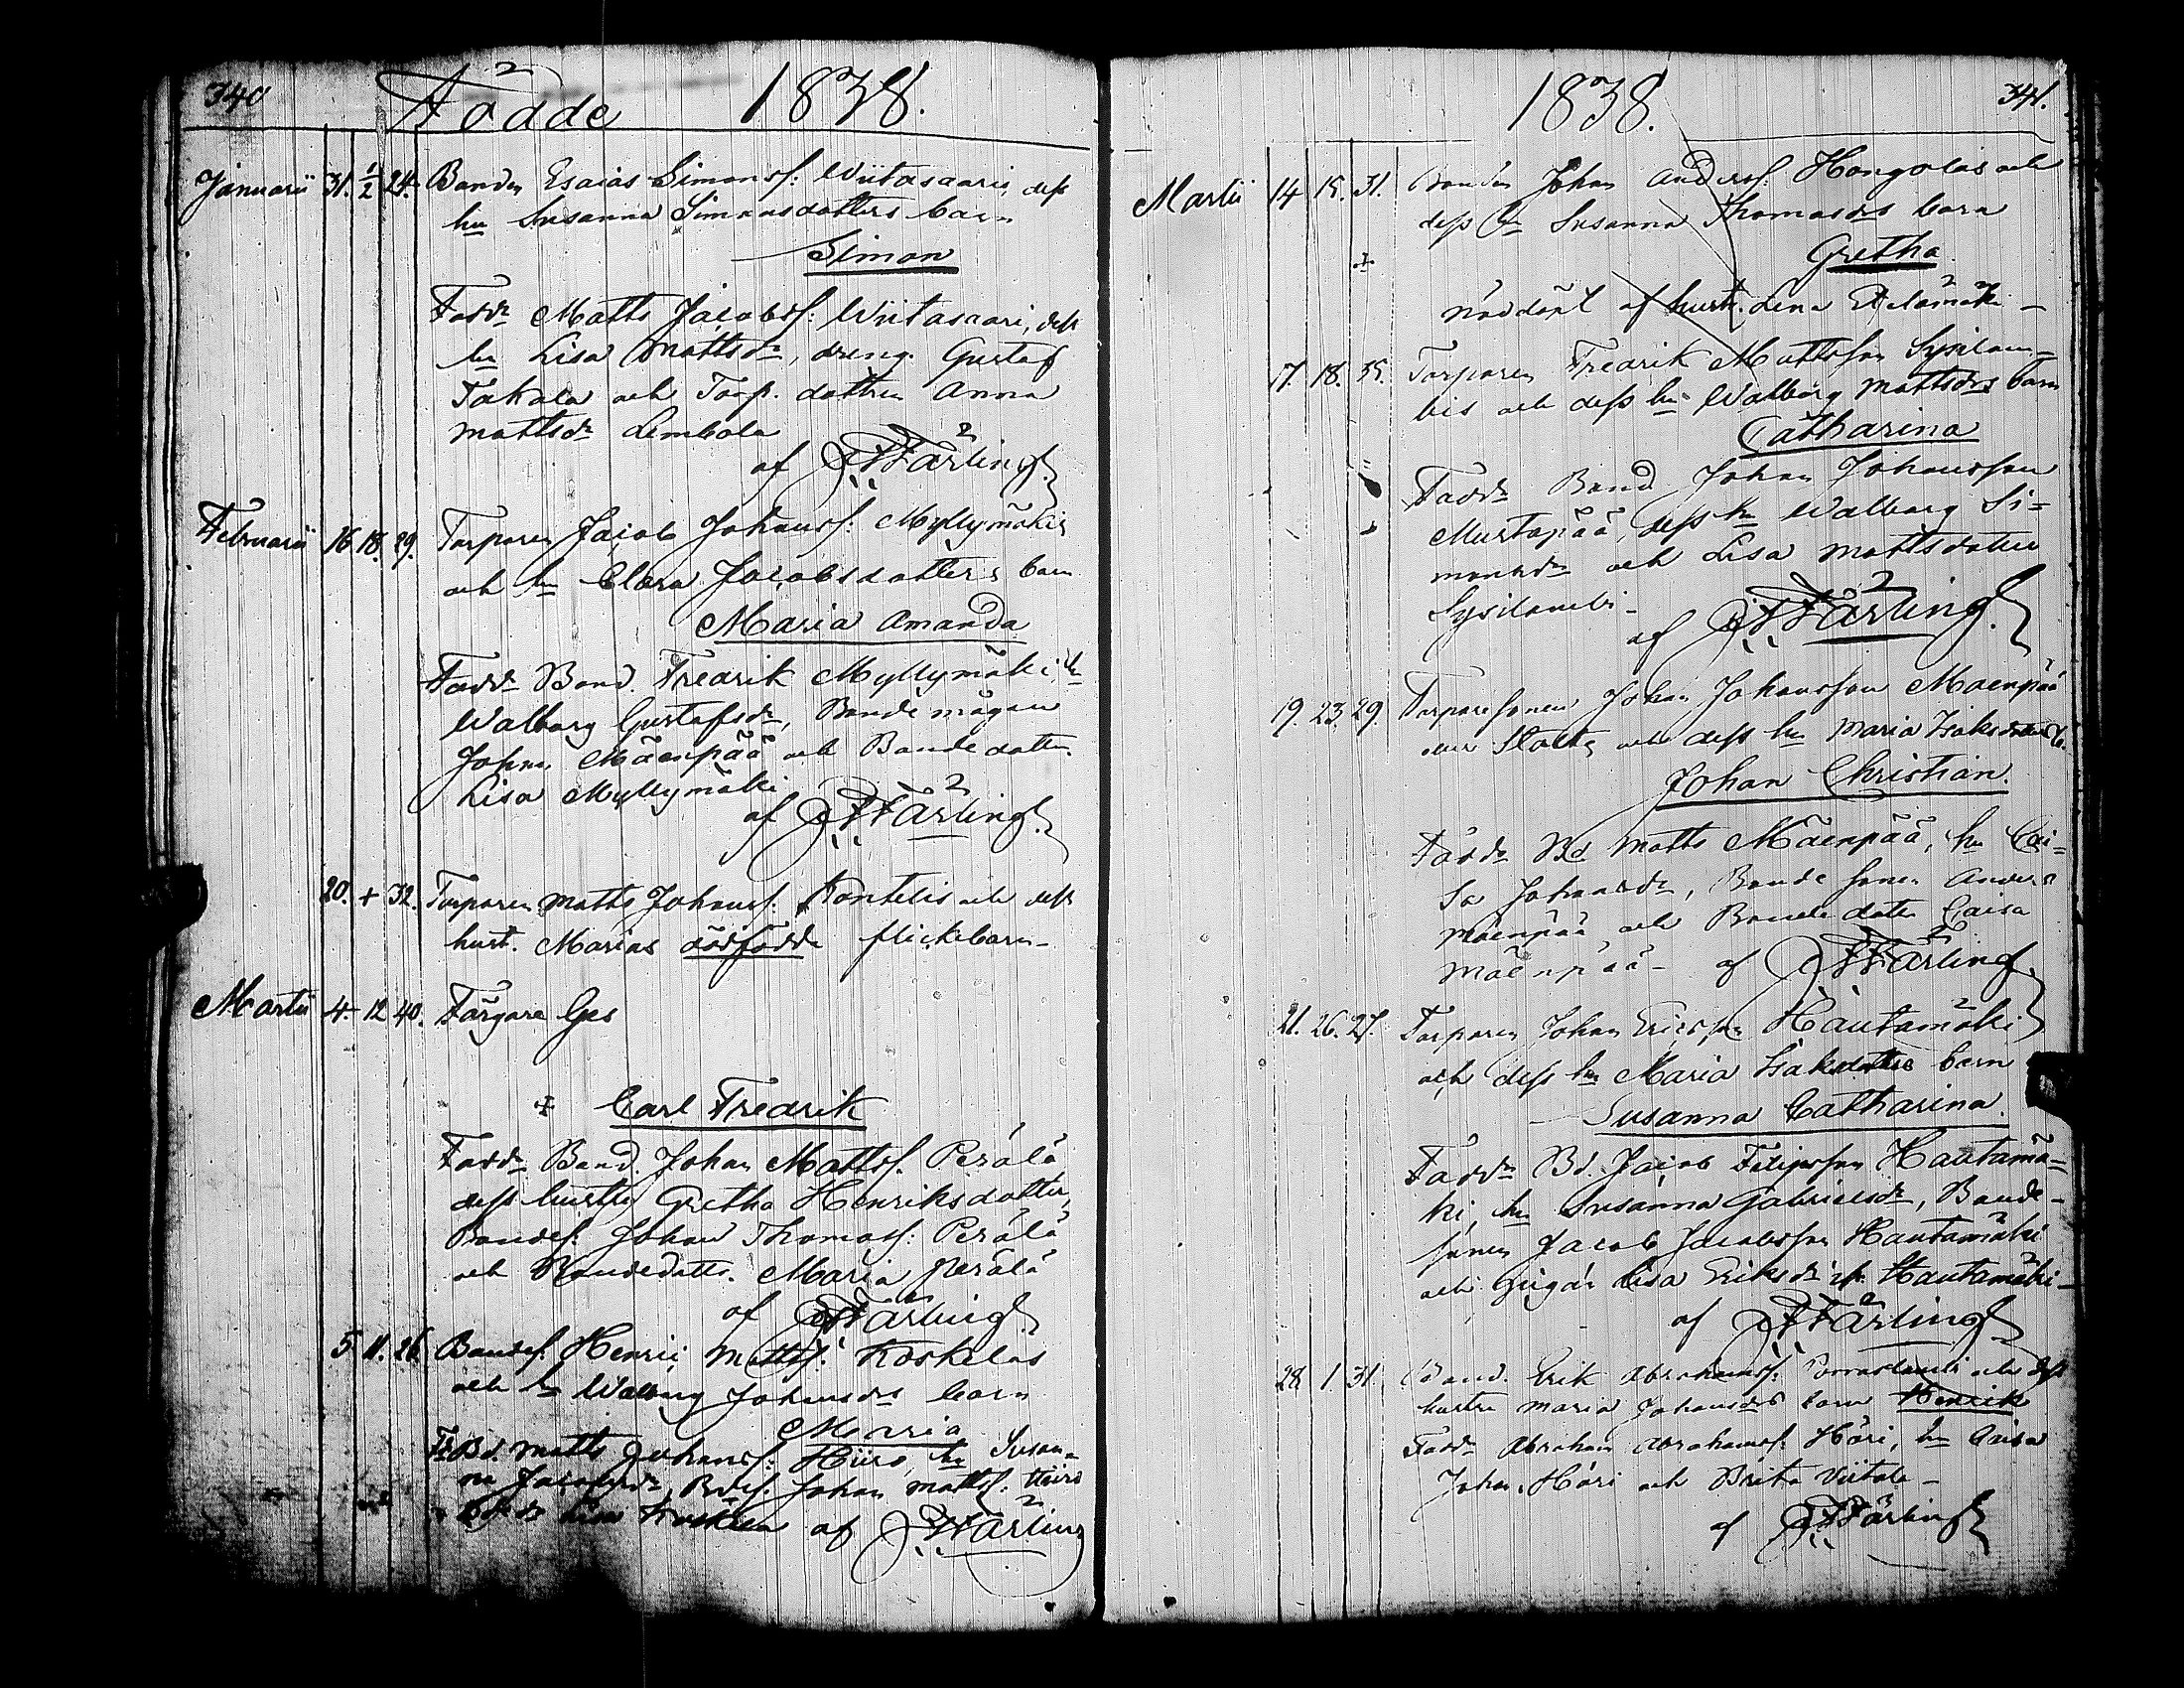 340
Födde 1838.
Januarii 31. 1/2 24. Bonden Esaias Simonss: Wiitasaaris, dess
hu Susanna Simonsdotters barn
Simon
Faddr Matts Jacobss: Wiitasaari, dess
hu Lisa Mattsdr, dreng. Gustaf
Takala och Torp. dottren Anna
Mattsdr Lembola
af Färling
Februarii 16 18. 29. Torparen Jacob Johanss: Myllymäkis
och hu Clara Jacobsdotters barn
Maria Amanda
Faddr Bond. Fredrik Myllymäki, hu
Walborg Gustafsdr, Bonde mågen
Johan Mäenpää och Bonde dottr.
Lisa Myllymäki
af Färling
20. + 32. Torparen Matts Johanss: Kontelis och dess
hust. Marias dödfödde flickebarn
Martii 4 12 40. Färgare Ges
+ Carl Fredrik
Faddr Bond. Johan Mattss. Perälä
dess hustru Gretha Henriksdotter,
Bondes: Johan Thomass: Perälä
och Bondedottr. Maria Perälä
af Färling
5 11. 26 Bondes. Henric Mattss: Koskelas
och hu Walborg Johansdrs barn
Maria
Fr Bd. Matts Johanss: Hiiro, hu Susan-
na Jacobsdr, Bdes. Johan Mattss: Hiiro
Lisa Koskela af Färling
341.
1838.
Martii 14 15. 31. Bonden Johan Anderss: Hongolas och
dess hu Susanna Thomasdrs barn
+ Gretha
nöddöpt af hustr. Lena Etelämäki -
17. 18. 35. Torparen Fredrik Mattsson Sysilam-
bis och dess hu Walborg Mattsdrs barn
Catharina
Faddr Bond Johan Johansson
Mustapää, dess hu Walborg Si-
monsdr och Lisa Mattsdotter
Sysilambi -
af Färling
19. 23. 29. Torparesonen Johan Johansson Mäenpää
och dess hu Maria Isaksdotters b.
Johan Christian.
Faddr Bd Matts Mäenpää, hu Cai-
sa Johansdr, Bonde sonen Anders
Mäenpää och Bonde dottr Caisa
Mäenpää - af Färling
21. 26. 27. Torparen Johan Ericsson Hautamäki
och dess hu Maria Isaksdotters barn
Susanna Catharina.
Faddr Bd. Jacob Filipsson Hautamä-
ki, hu Susanna Gabrielsdr, Bonde-
sonen Jacob Jacobsson Hautamäki
och Pigan Lisa Eriksdr Hautamäki -
af Färling
28. 1. 31. Bond. Erik Abrahamss: Porraslambi och dess
hustru Maria Johansdrs barn Henrik
Faddr Abraham Abrahamss. Häri, hu Caisa
Johan Häri och Brita Viitala -
af Färling